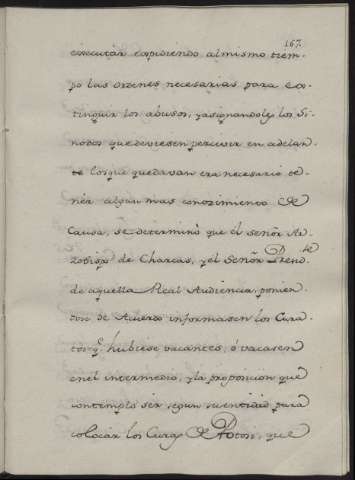 167.
executár expidiendo al mismo tiem-
po las ordenes necesarias para ex-
tinguir los abusos, yasignandoles los Si-
nodos que deviesen percivir en adelan-
te los que quedavan era necesario te-
nér algun mas conozimiento de
Causa, se determinó que el señor Ar-
zobispo de Charcas, y el Señor Presid.te
de aquella Real Audiencia, ponien-
dose de Acuerdo informasen los Cura-
tos q.e hubiese vacantes, ó vacasen
en el intermedio, y la proporcion que
contemplo ser, segun su entidad para
colocar los Curas de Potosi, que